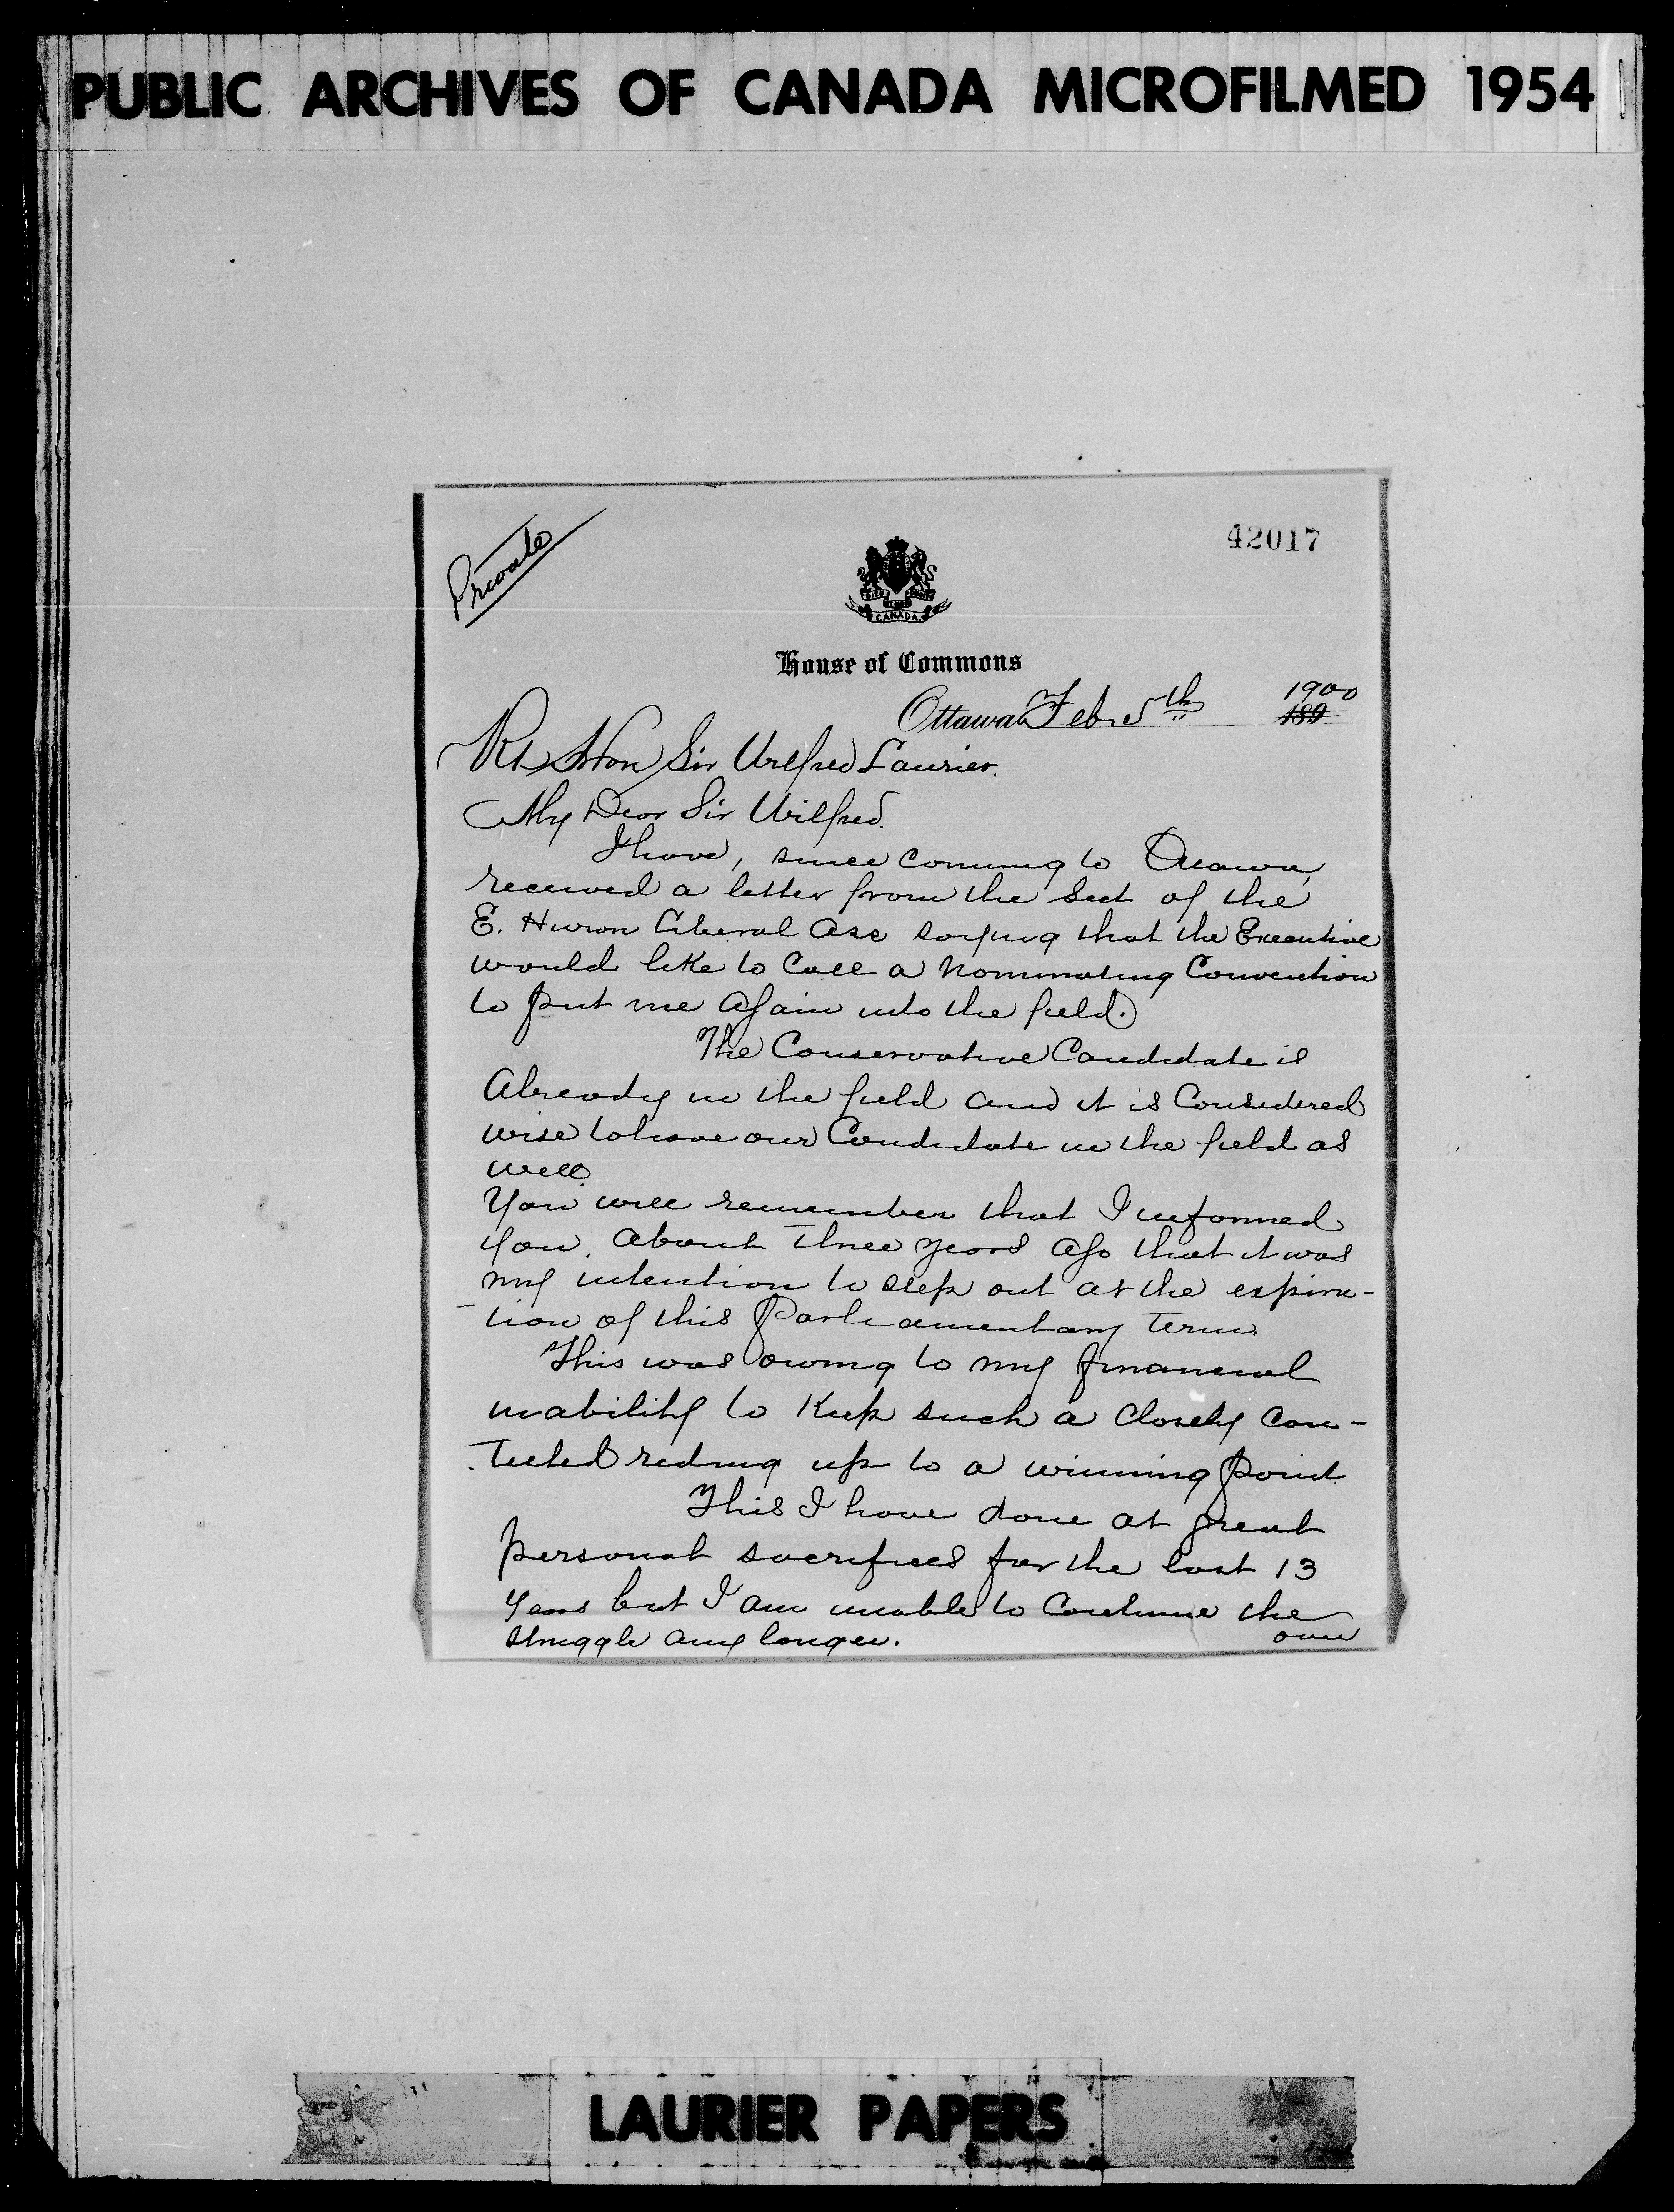 PUBLIC ARCHIVES OF CANADA MICROFILMED 1954
Private
42017
CANADA
House of Commons
1900
Ottawa Feb. 5th 189
Rt Hon Sir Wilfred Laurier.
My Dear Sir Wilfred.
I have, since coming to Ottawa,
received a letter from the Sect of the
E. Huron Liberal Ass saying that the Executive
would like to Call a Nominating Convention
to put me again into the field.
The Conservative Candidate is
Already in the field and it is Considered
wise to have our Candidate in the field as
well.
You will remember that I informed
you, about three years ago that it was
my intention to step out at the expira-
-tion of this Parliamentary term.
This was owing to my financial
inability to Keep such a Closely Con-
-tested riding up to a winning point.
This I have done at great
personal sacrifices for the last 13
years but I am unable to Continue the
struggle any longer.
over
LAURIER PAPERS